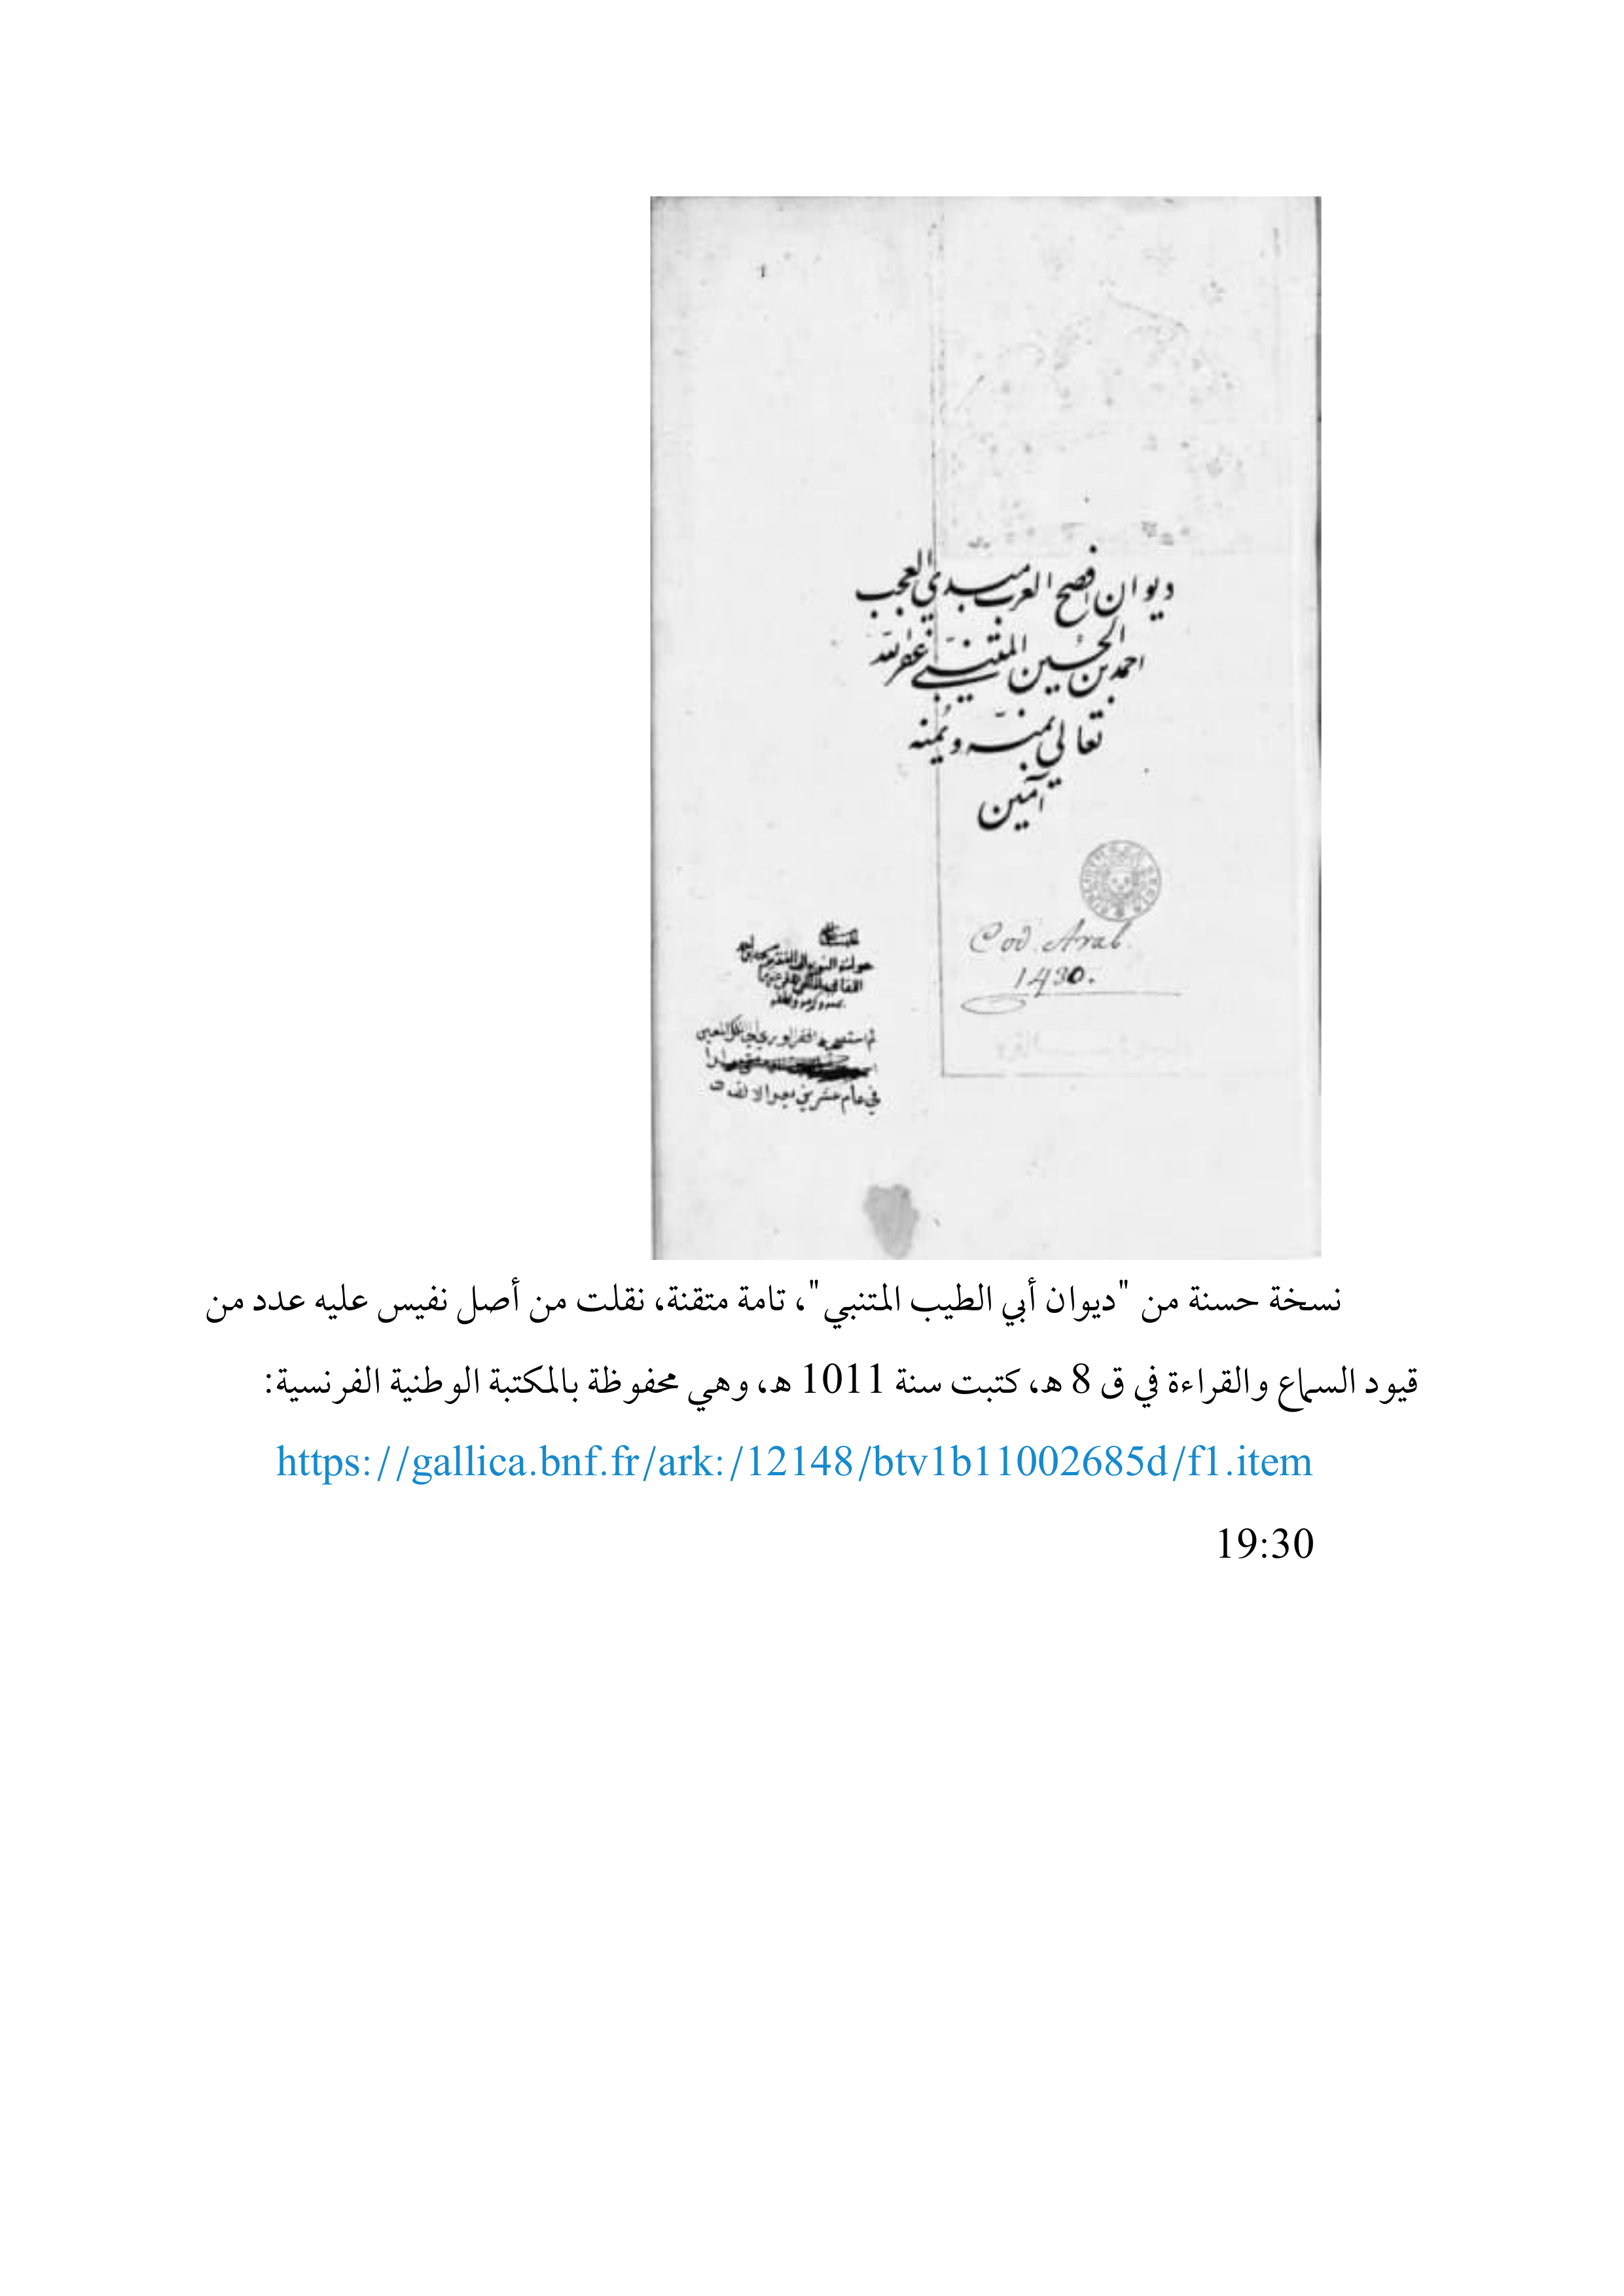 1
ديوان افصح العرب مبدي العجب
احمد بن الحُسين المتنبّي غفر الله
تعالى بمنّه ويُمنه
آمين
Cod. Arab.
1430.
في عام عشرين بعد الالف
نسخة حسنة من "ديوان أبي الطيب المتنبي"، تامة متقنة، نقلت من أصل نفيس عليه عدد من
قيود السماع والقراءة في ق 8 هـ، كتبت سنة 1011 هـ، وهي محفوظة بالمكتبة الوطنية الفرنسية:
https://gallica.bnf.fr/ark:/12148/btv1b11002685d/f1.item
19:30